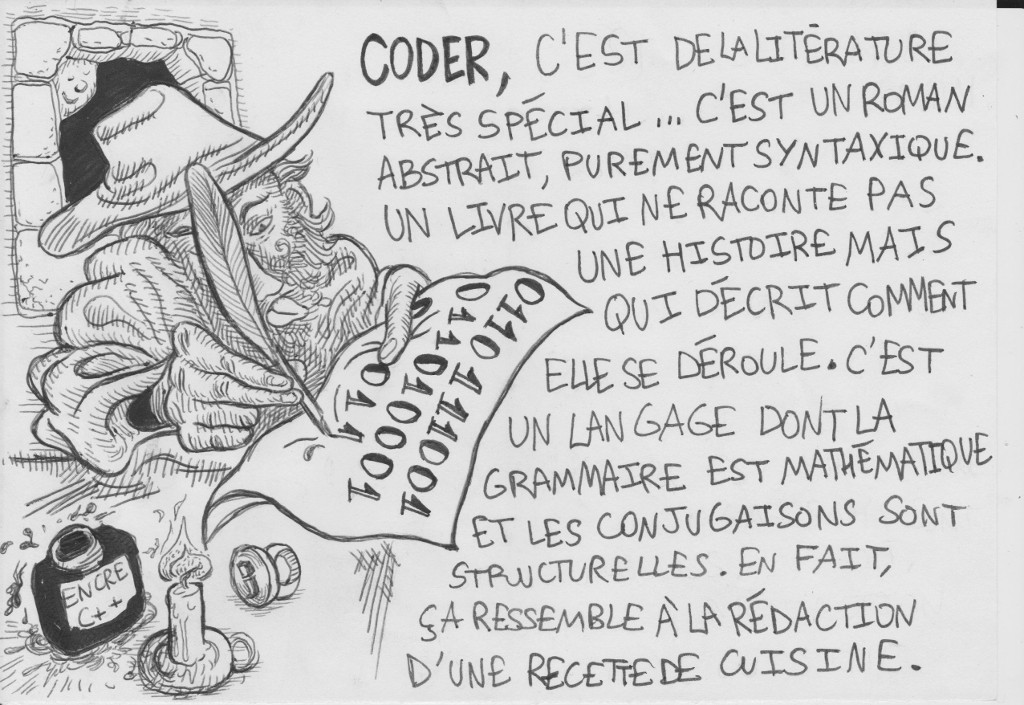 CODER, C'EST DE LA LITÉRATURE
TRÈS SPÉCIAL... C'EST UN ROMAN
ABSTRAIT, PUREMENT SYNTAXIQUE.
UN LIVRE QUI NE RACONTE PAS
UNE HISTOIRE MAIS
QUI DÉCRIT COMMENT
ELLE SE DÉROULE. C'EST
UN LANGAGE DONT LA
GRAMMAIRE EST MATHÉMATIQUE
ET LES CONJUGAISONS SONT
STRUCTURELLES. EN FAIT,
ÇA RESSEMBLE À LA RÉDACTION
D'UNE RECETTE DE CUISINE.
0110111001
01101000
011001
011
ENCRE
C++